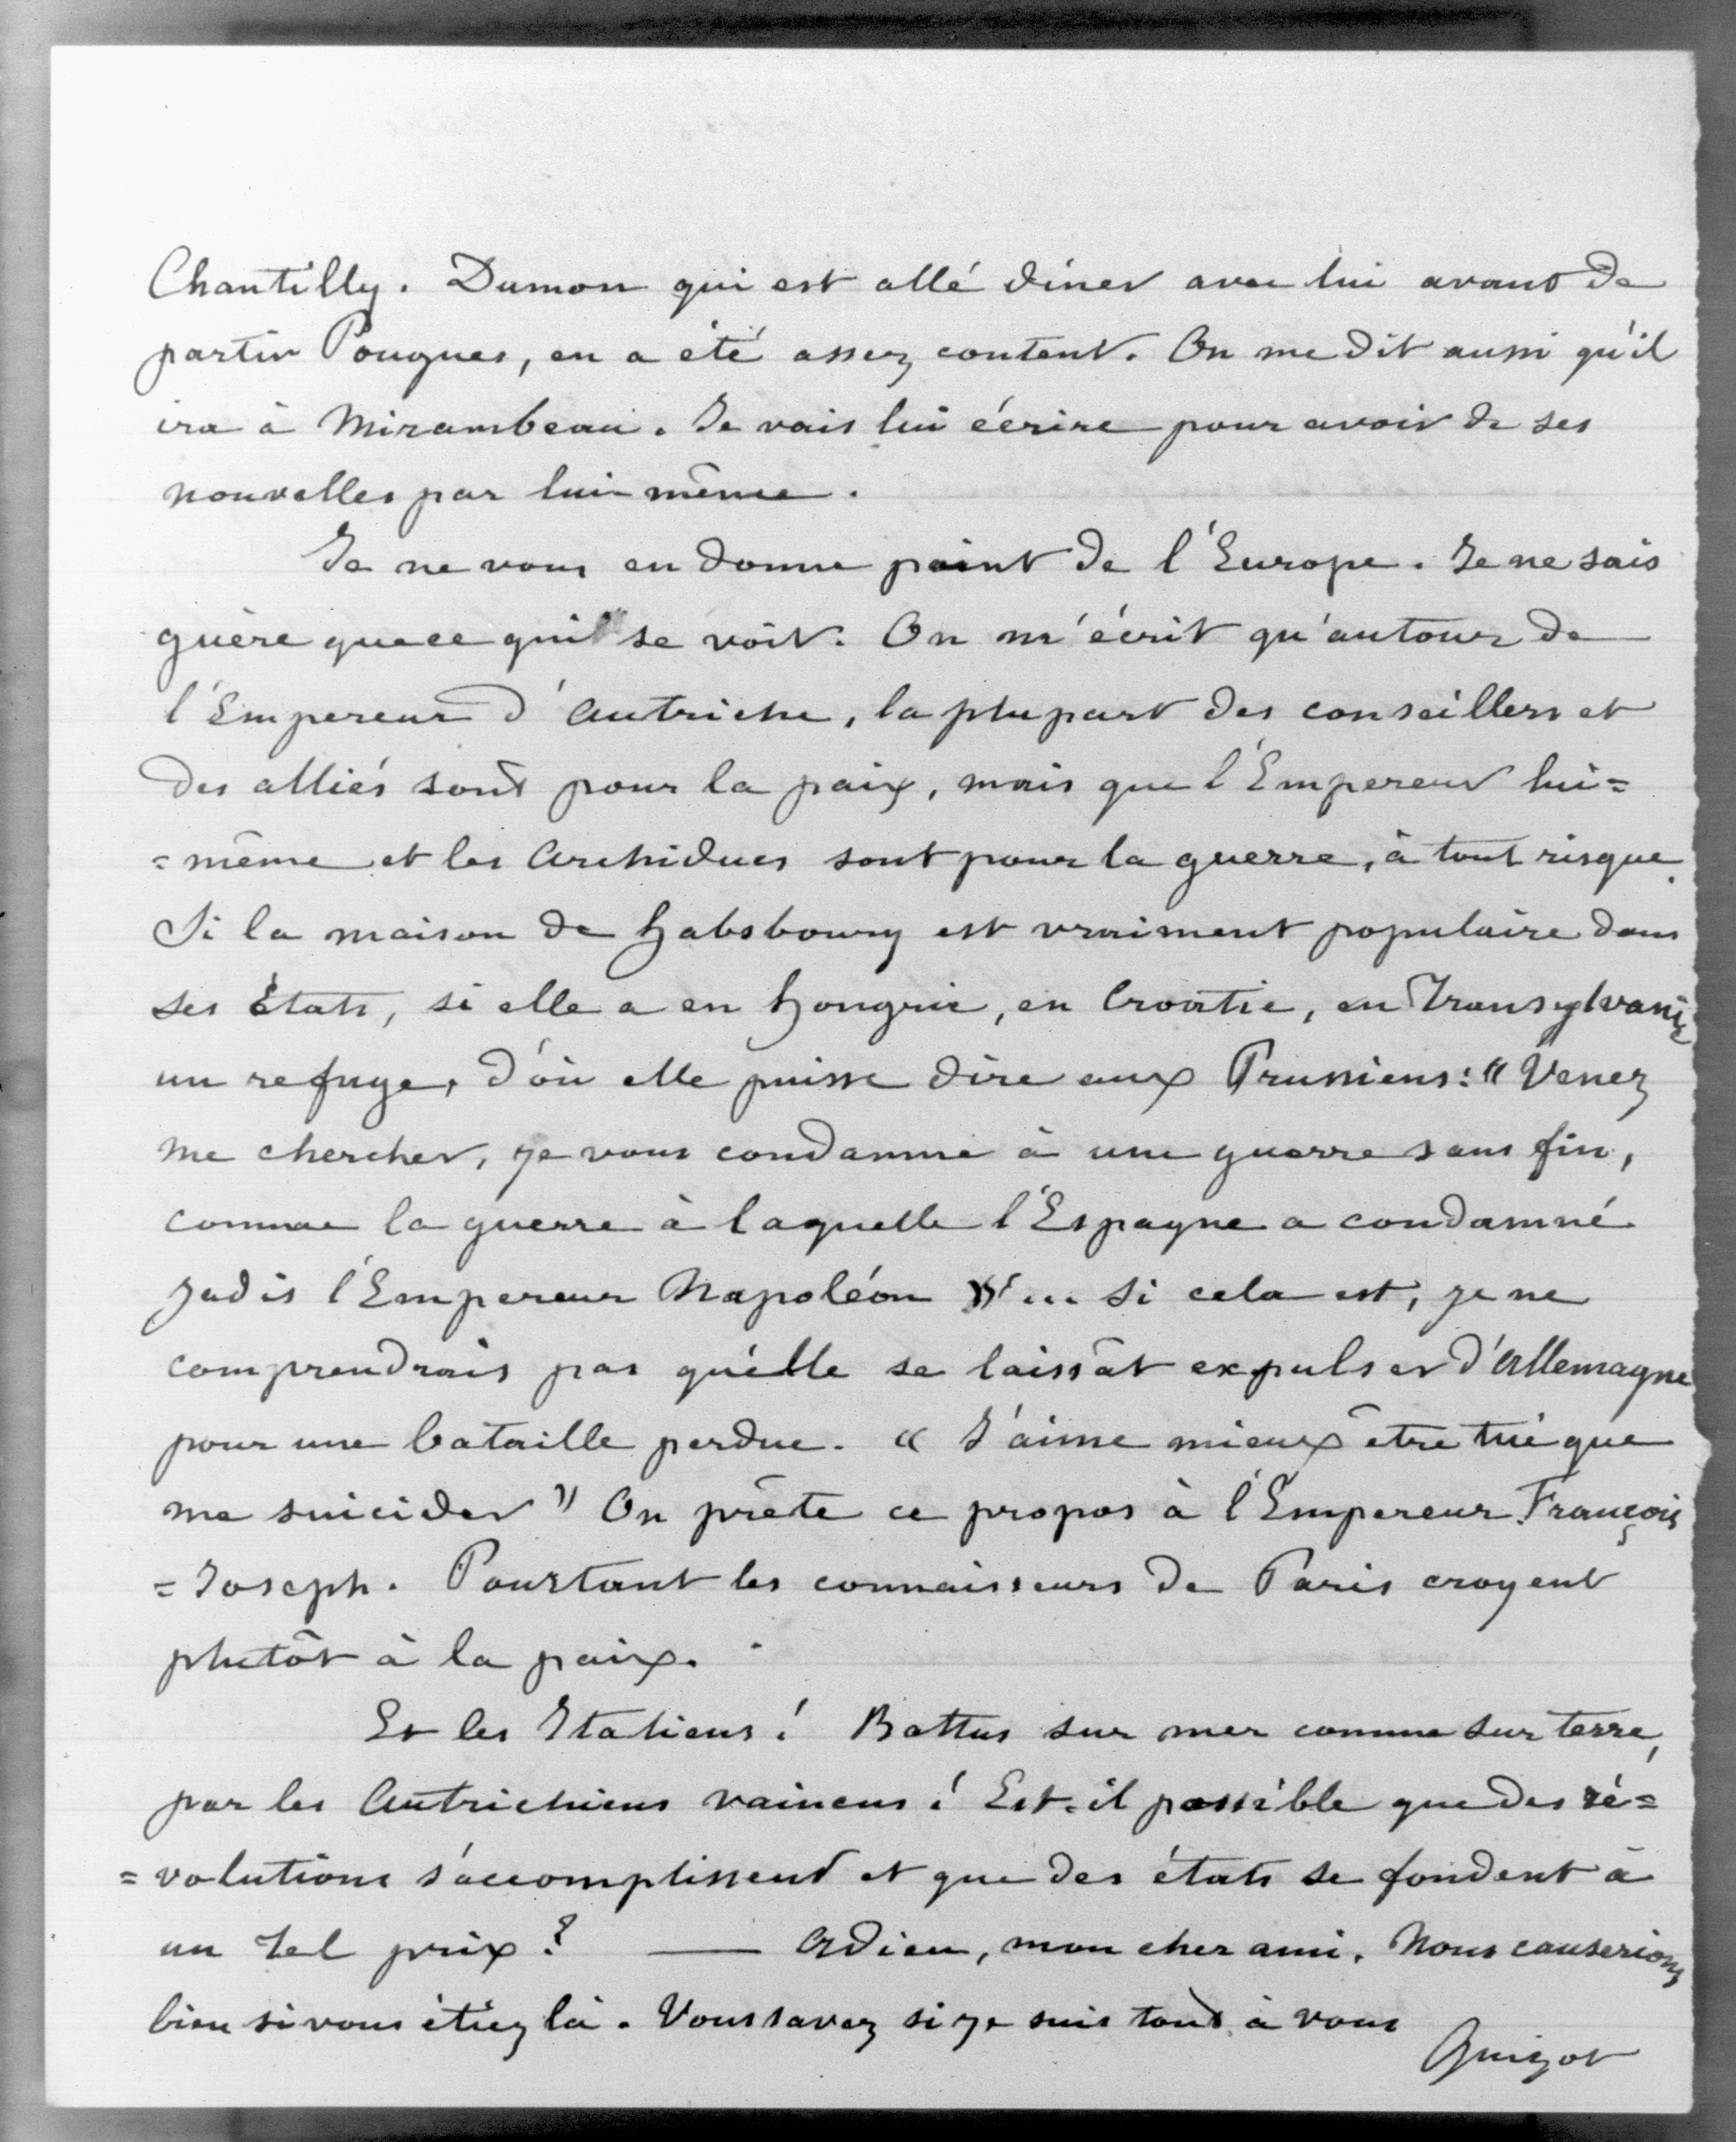 Chantilly. Dumon qui est allé dîner avec lui avant de
partir Pougues, en a été assez content. On me dit aussi qu'il
ira à Mirambeau. Je vais lui écrire pour avoir de ses
nouvelles par lui même.
Je ne vous en donne point de l'Europe. Je ne sais
guère que ce qui se voit. On m'écrit qu'autour de
l'Empereur d'Autriche, la plupart des conseillers et
des alliés sont pour la paix, mais que l'Empereur lui=
=même et les Archiducs sont pour la guerre, à tout risque.
Si la maison de habsbourg est vraiment populaire dans
ses États, si elle a en hongrie, en Croatie, en Transylvanie
un refuge, d'où elle puisse dire aux Prussiens: « Venez
me chercher, je vous condamne à une guerre sans fin,
comme la guerre à laquelle l'Espagne a condamné
jadis l'Empereur Napoléon »... si cela est, je ne
comprendrais pas qu'elle se laissât expulser d'Allemagne
pour une bataille perdue. « J'aime mieux être tué que
me suicider » On prête ce propos à l'Empereur François
=Joseph. Pourtant les connaisseurs de Paris croyent
plutôt à la paix.
Et les Italiens! Battus sur mer comme sur terre,
par les Autrichiens vaincus! Est-il possible que des ré=
=volutions s'accomplissent et que des états se fondent à
un tel prix? — Adieu, mon cher ami. Nous causerions
bien si vous étiez là. Vous savez si je suis tout à vous
Guizot